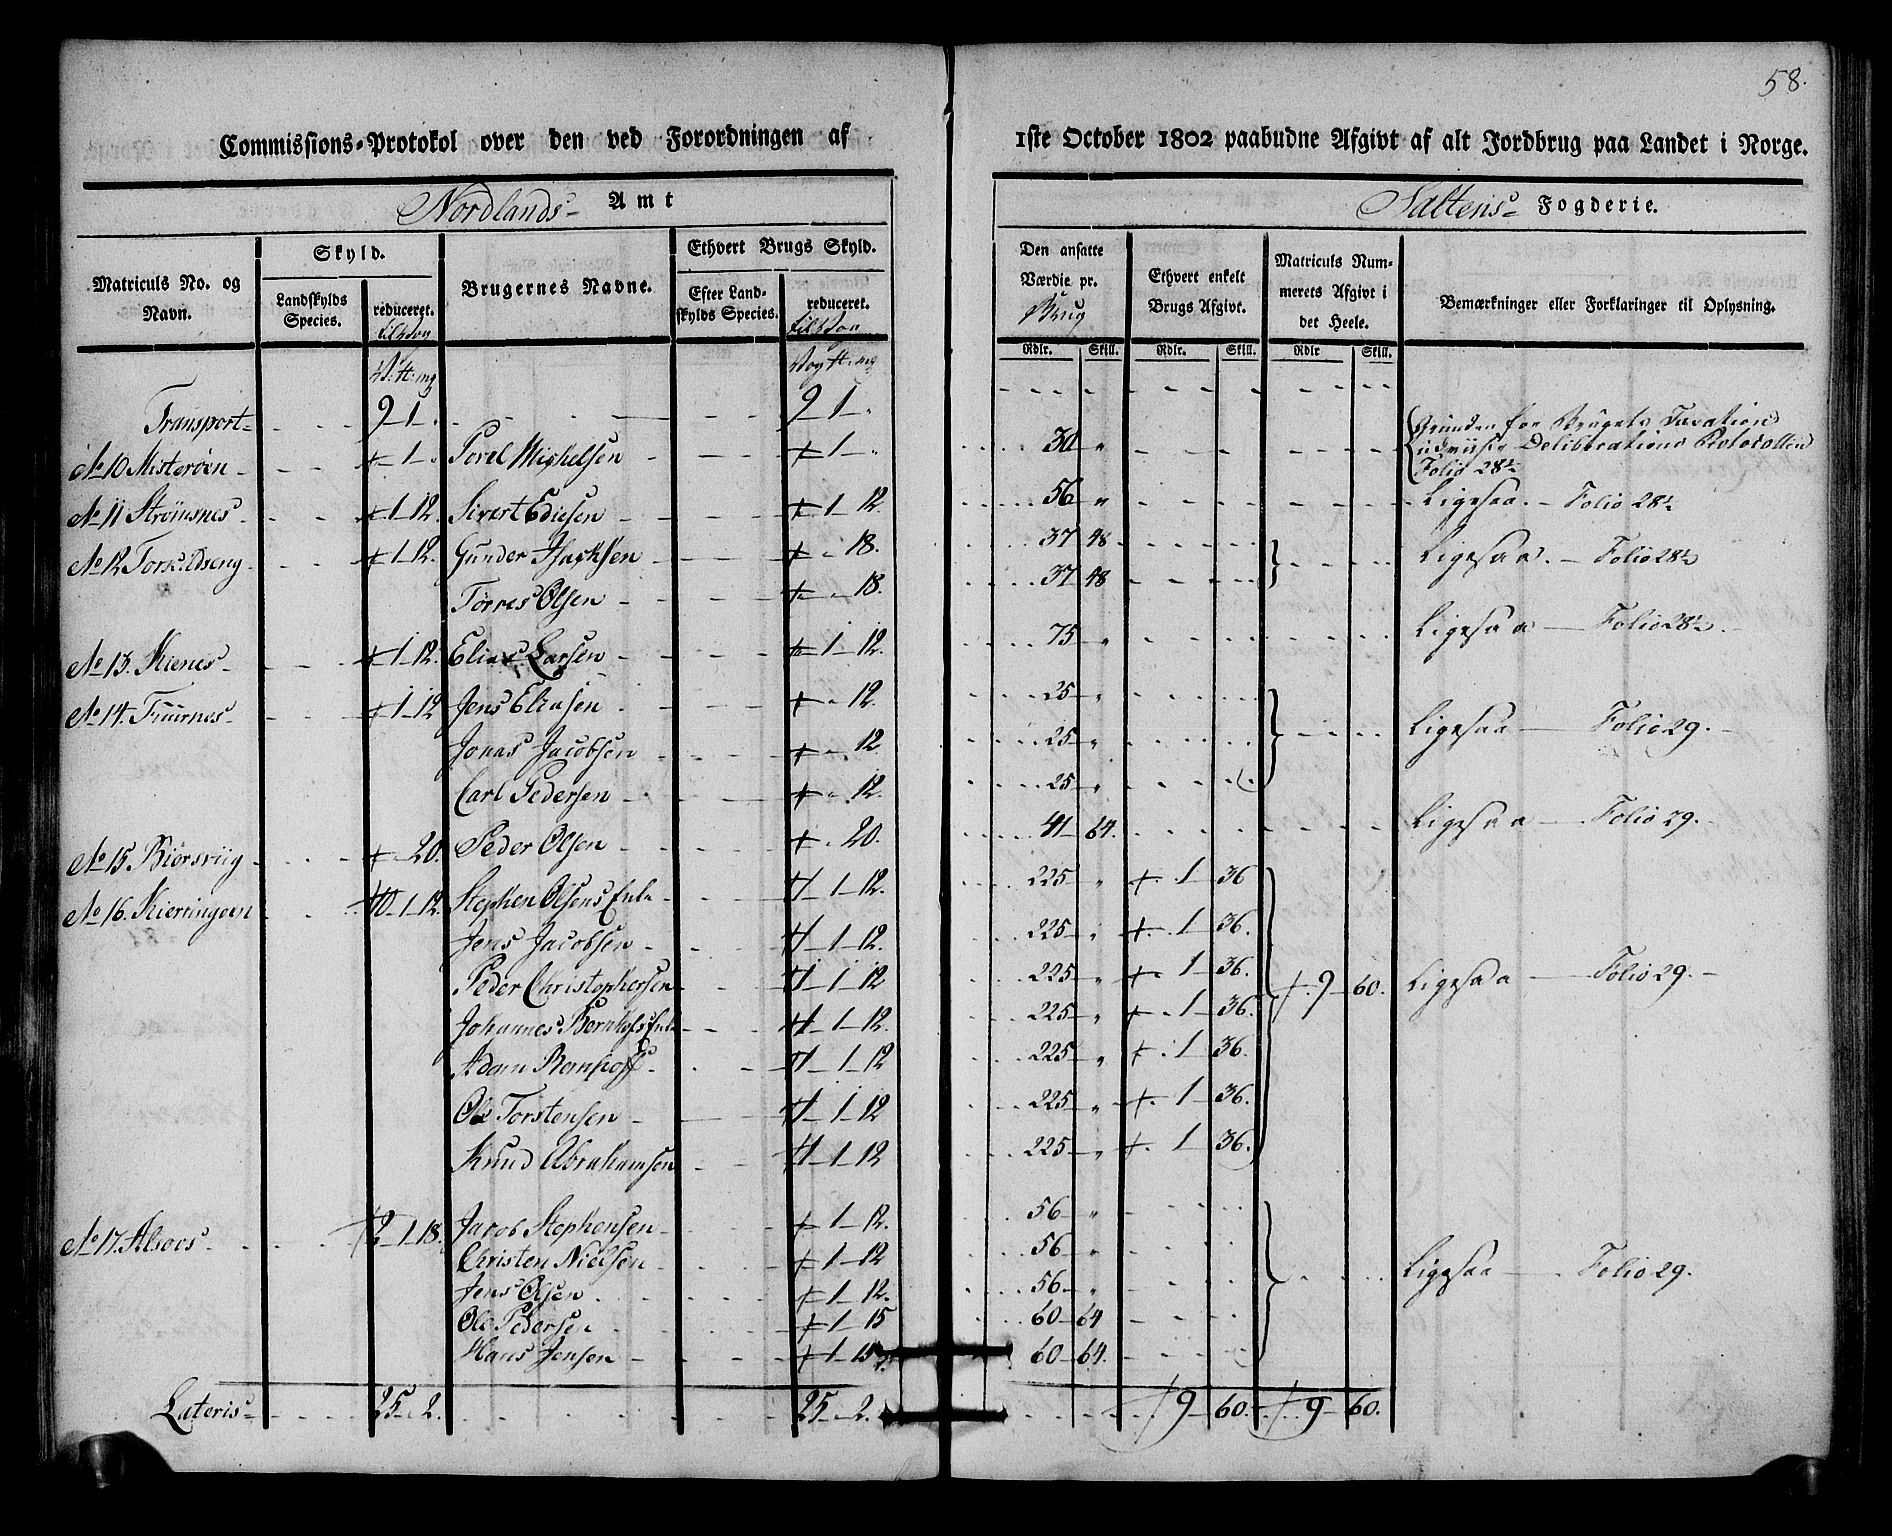 58.
Commissions-Protokol over den ved Forordningen af 1ste October 1802 paabudne Afgivt af alt Jordbrug paa Landet i Norge.
Nordlands Amt Saltens Fogderie.
Matriculs No. og Navn.
Skyld.
Landskylds Species.
reduceret.
Brugernes Navne.
Ethvert Brugs Skyld.
Efter Landskylds Species.
reduceret.
Den ansatte Værdie pr. Brug
Ethvert enkelt Brugs Afgivt.
Matriculs Nummerets Afgivt i det Heele.
Bemærkninger eller Forklaringer til Oplysning.
Rdlr. Skill. Rdlr. Skill. Rdlr Skill.
Transport 9 1 9 1
No 10 Misterøen 1 Povel Michelsen 1 30 Grunden for Brugets Taxation udviises Deliberations Protocollen Folio 28½
No 11 Strømsnes 1 12. Sivert Edisen 1 12 56 Ligesaa. Folio 28½
No 12 Torskildseng 1 12. Gunder Isachsen 18. 37 48 Ligesaa. Folio 28½
Torres Olsen 18. 37 48
No 13. Kienes 1 12. Elias Larsen 1 12. 75 Ligesaa Folio 28½.
No 14. Tuurnes 1 12 Jens Eliasen 12. 25 Ligesaa Folio 29.
Jonas Jacobsen 12 25
Carl Pedersen 12. 25
No 15. Biørsviig 20. Peder Olsen 20. 41 64. Ligesaa Folio 29.
No 16. Kierringøen 10 1 12. Stephen Olsens Enke 1 1 12. 225 1 36
Jens Jacobsen 1 1 12. 225 1 36.
Peder Christophersen 1 1 12 225 1 36. 9 60. Ligesaa Folio 29.
Johannes Bernhofs Enke 1 1 12. 225 1 36.
Adam Bernhoff 1 1 12 225 1 36.
Ole Torstensen 1 1 12 225 1 36.
Knud Abrahamsen 1 1 12 225 1 36.
No 17. Alsoes 2 1 18. Jacob Stephensen 1 12. 56
Christen Nielsen 1 12 56
Jens Olsen 1 12. 56 Ligesaa Folio 29.
Ole Pedersen 1 15 60 64
Hans Jensen 1 15 60 64.
Lateris 25 2. 25 2. 9 60. 9 60.